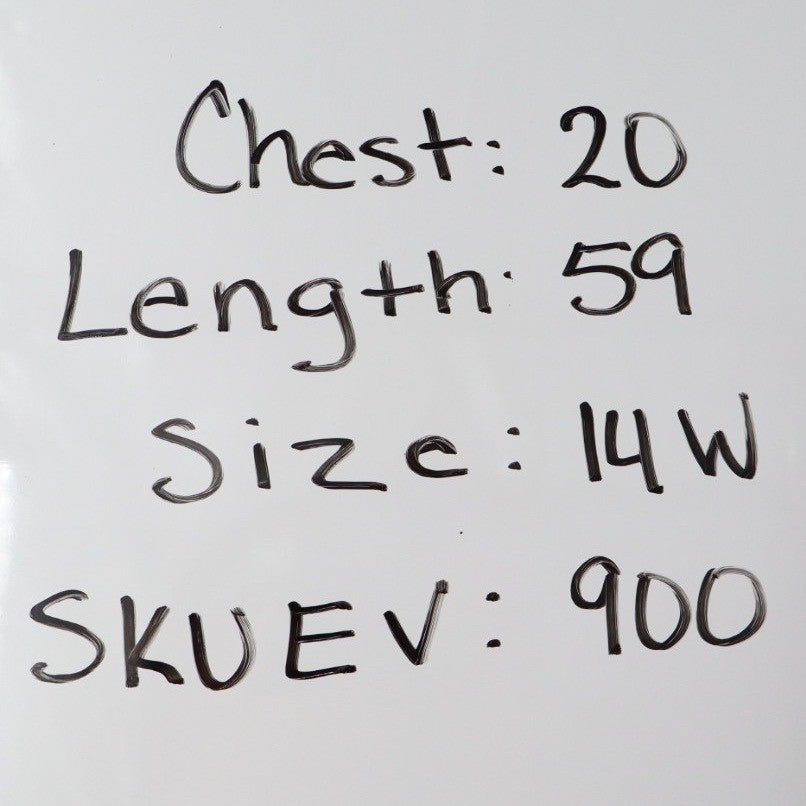 Chest: 20
Length: 59
Size: 14W
SKUEV: 900